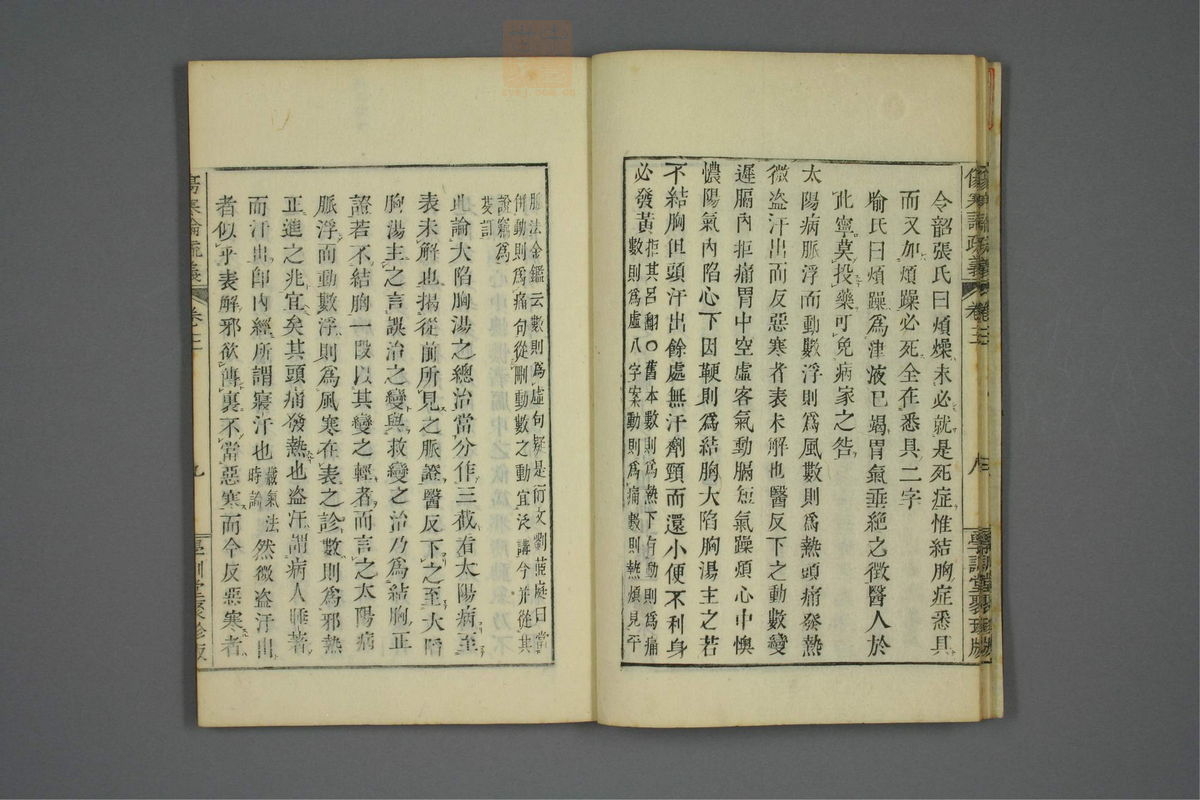 傷寒論疏義 卷三 八 學訓堂聚珍版
令韶張氏曰煩燥未必就是死症惟結胸症悉具
而又加煩躁必死全在悉具二字
喻氏曰煩躁爲津液已竭胃氣垂絕之徵醫人於
此寧莫投藥可免病家之咎
太陽病脈浮而動數浮則爲風數則爲熱頭痛發熱
微盜汗出而反惡寒者表未解也醫反下之動數變
遲膈內拒痛胃中空虛客氣動膈短氣躁煩心中懊
憹陽氣內陷心下因鞕則爲結胸大陷胸湯主之若
不結胸但頭汗出餘處無汗劑頸而還小便不利身
必發黃
拒其呂翻〇舊本數則爲熱下有動則爲痛
數則爲虛八字案動則爲痛數則熱煩見平
脈法金鑑云數則爲虛句疑是衍文劉茝庭曰當
併動則爲痛句從刪動數之動宜泛講今並從其
說竄爲
芟訂
此論大陷胸湯之總治當分作三截看太陽病至
表未解也揭從前所見之脈證醫反下之至大陷
胸湯主之言誤治之變與救變之治乃爲結胸正
證若不結胸一段以其變之輕者而言之太陽病
脈浮而動數浮則爲風寒在表之診數則爲邪熱
正進之兆宜矣其頭痛發熱也盜汗謂病人睡著
而汗出卽內經所謂寢汗也
藏氣法
時論
然微盜汗出
者似乎表解邪欲傳裏不當惡寒而今反惡寒者
傷寒論疏義 卷三 九 學訓堂聚珍版